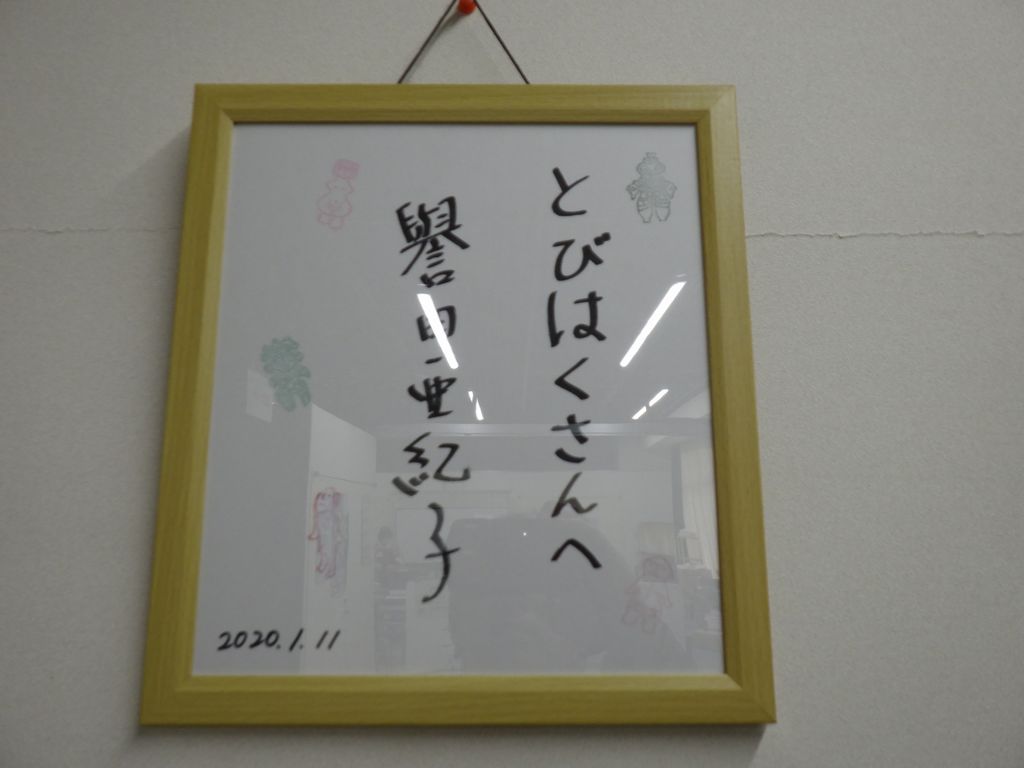 とびはくさんへ
譽田亜紀子
2020.1.11